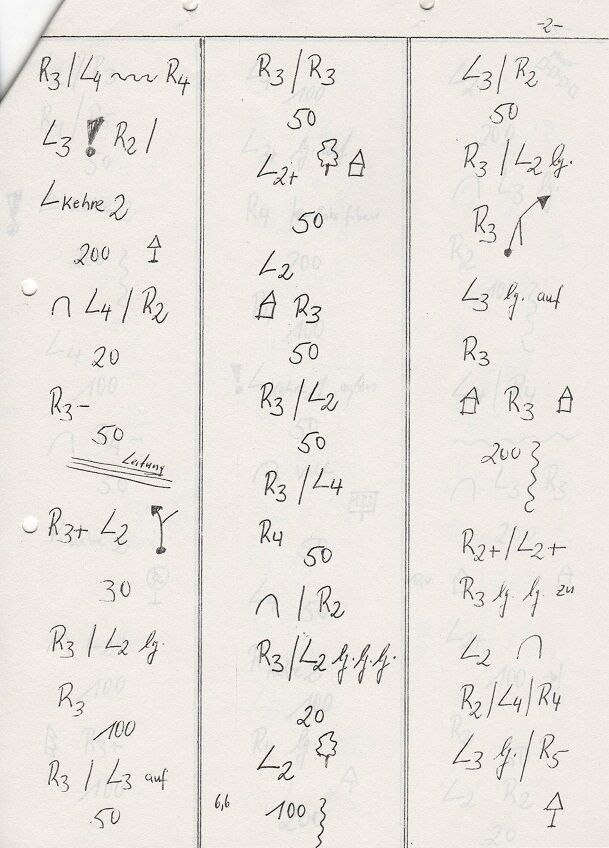 -2-
R3/L4 ~~~ R4
L3 ! R2/
Lkehre 2
200
∩ L4/R2
20
R3-
50
Leitung
R3+ L2
30
R3/L2 lg.
R3
100
R3/L3 auf
50
R3/R3
50
L2+
50
L2
R3
50
R3/L2
50
R3/L4
R4
50
∩/R2
R3/L2 lg. lg. lg.
20
L2
6,6 100
L3/R2
50
R3/L2 lg.
R3
L3 lg. auf
R3
R3
200
R2+/L2+
R3 lg. lg. zu
L2 ∩
R2/L4/R4
L3 lg./R5